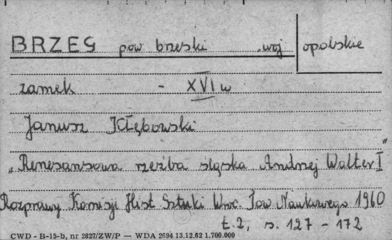 BRZEG pow brzeski woj opolskie
zamek - XVI w
Janusz Kłębowski
„Renesansowa rzeźba śląska Andrzej Walter I"
Rozprawy Komisji Hist Sztuki Wroc. Tow. Naukowego 1960
t. 2, s. 127 - 172
CWD - B-15-b, nr 2827/ZW/P — WDA 2694 13.12.62 1.700.000